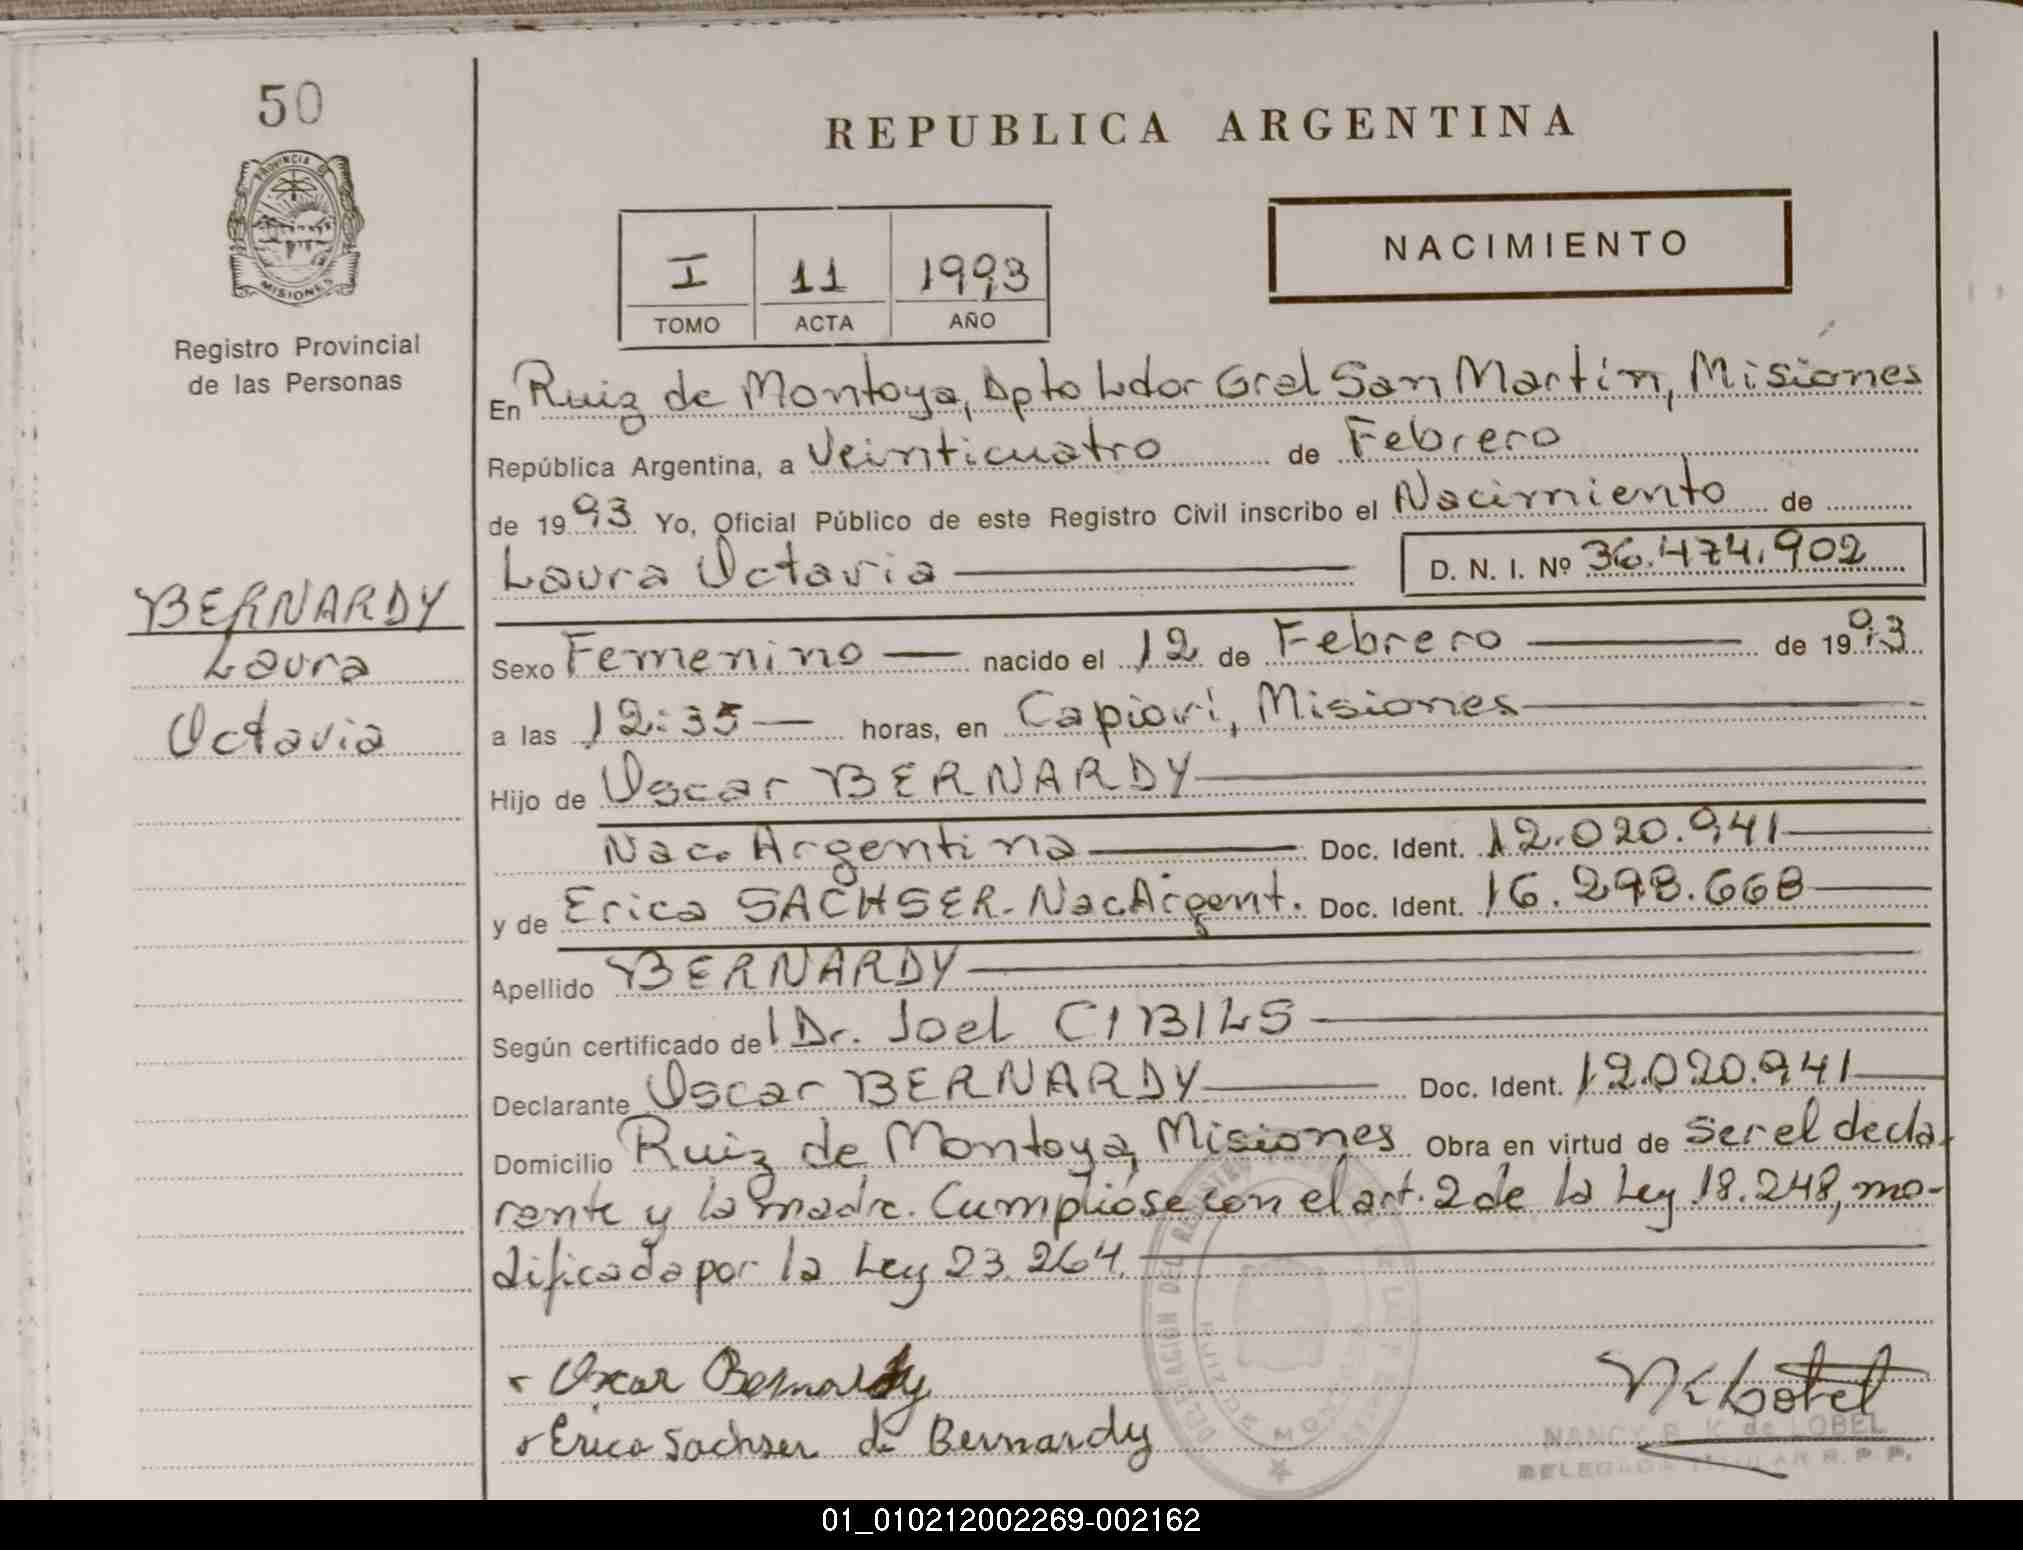 50
PROVINCIA DE
MISIONES
Registro Provincial
de las Personas
BERNARDY
Laura
Octavia
REPUBLICA ARGENTINA
NACIMIENTO
I 11 1993
TOMO ACTA AÑO
En Ruiz de Montoya, Dpto Ldor Gral San Martín, Misiones
República Argentina, a Veinticuatro de Febrero
de 1993 Yo, Oficial Público de este Registro Civil inscribo el Nacimiento de
Laura Octavia D. N. I. Nº 36.474.902
Sexo Femenino nacido el 12 de Febrero de 1993
a las 12:35 horas, en Capioví, Misiones
Hijo de Oscar BERNARDY
Nac. Argentina Doc. Ident. 12.020.941
y de Erica SACHSER- Nac Argent. Doc. Ident. 16.298.668
Apellido BERNARDY
Según certificado del Dr. Joel CIBILS
Declarante Oscar BERNARDY Doc. Ident. 12.020.941
Domicilio Ruiz de Montoya, Misiones Obra en virtud de ser el decla-
rante y la madre. Cumplióse con el art. 2 de la Ley 18.248, mo-
dificada por la Ley 23.264.
Oscar Bernardy
Erica Sachser de Bernardy
NANCY R. K. de LOBEL
DELEGADA TITULAR R. P. P.
01_010212002269-002162